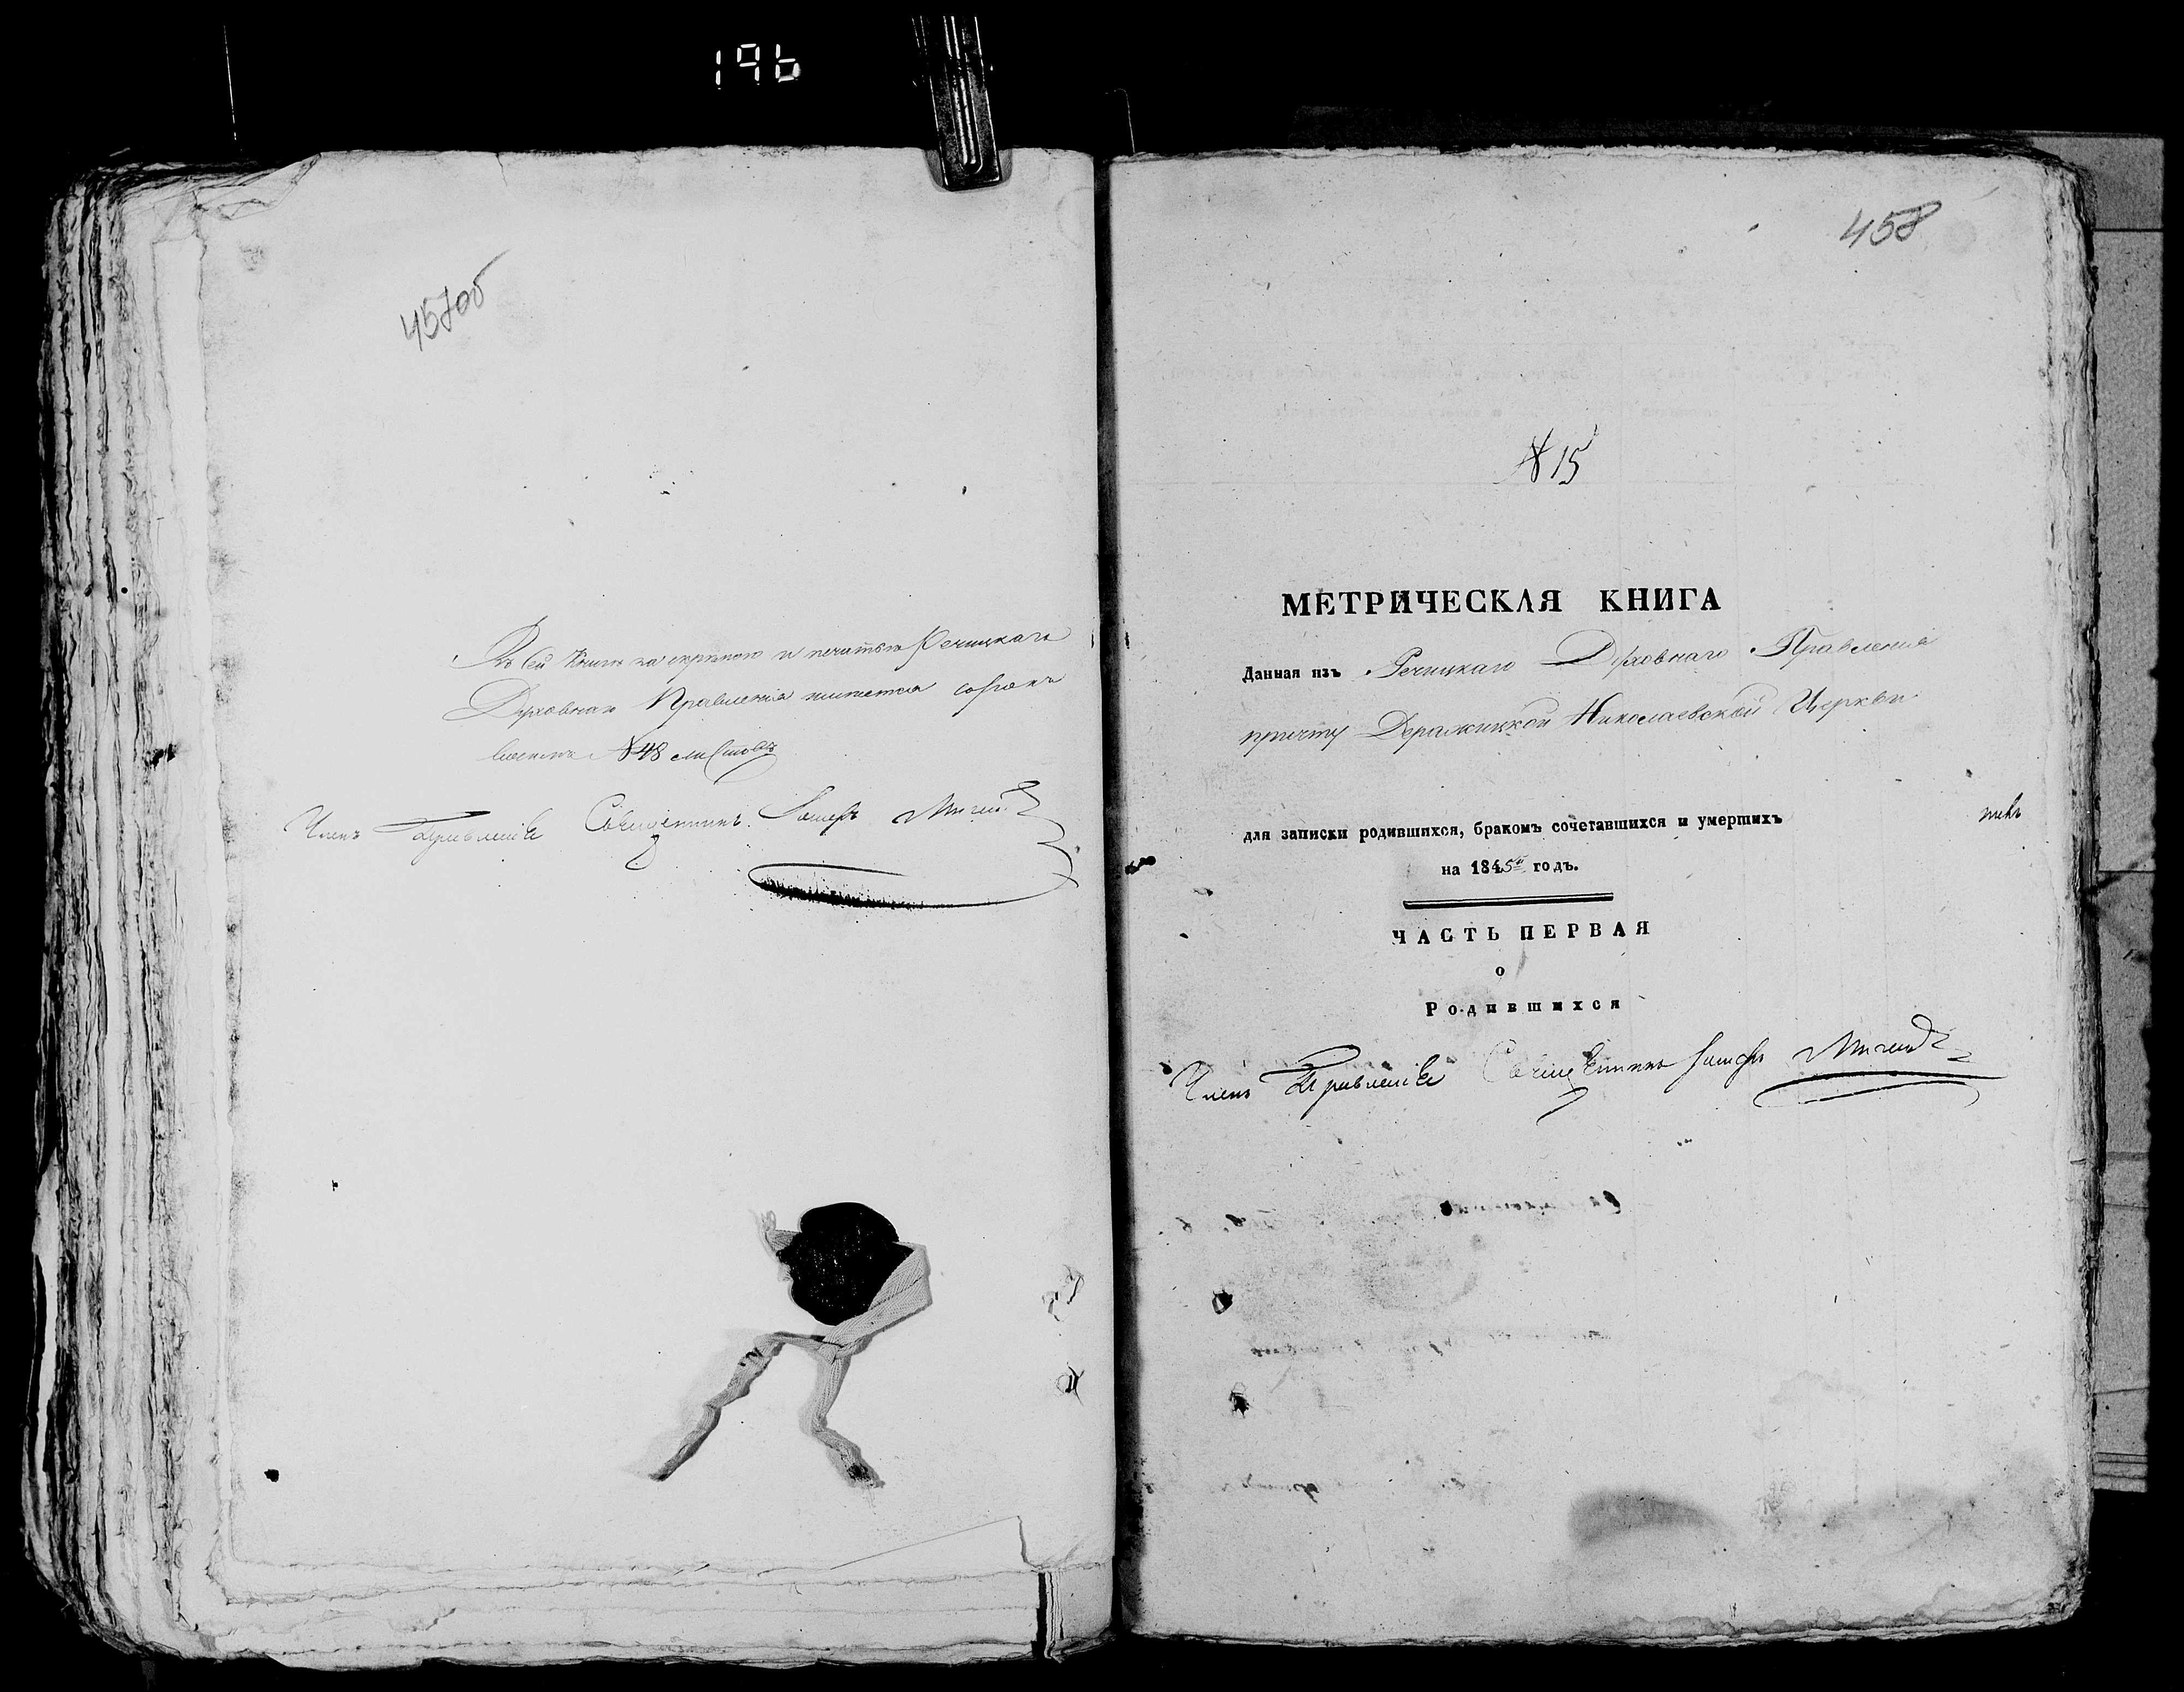 196
457об
Въ сей книге за скрепою и печатью Речицкаго
Духовнаго Правления имеется сорокъ
восемь № 48 листовъ
Членъ Правленія Священникъ
458
№ 15
МЕТРИЧЕСКАЯ КНИГА
Данная изъ Речицкаго Духовнаго Правления
причту Деражицкой Николаевской Церкви
для записки родившихся, бракомъ сочетавшихся и умершихъ
на 1845й годъ.
ЧАСТЬ ПЕРВАЯ
о
Родившихся
Членъ Правленія Священникъ